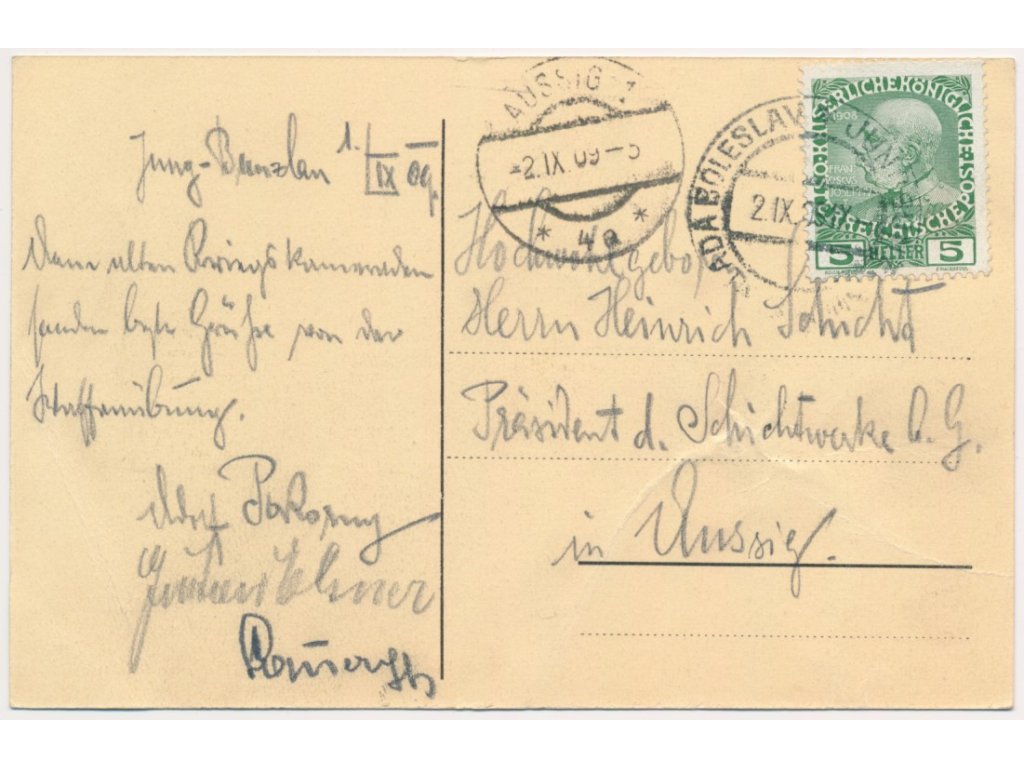 Jung-Bunzlau 1./IX 09.
Dem alten Kriegskameraden
senden beste Grüße von der
Waffenübung.
Pokorny
AUSSIG 1
2.IX 09-5
* 4a *
MLADA BOLESLAV
2.IX.09
KAISERLICHE KÖNIGLICHE
ÖSTERREICHISCHE POST
1908
5 HELLER 5
Hochwohlgebo
Herrn Heinrich Schicht
Präsident d. Schichtwerke A. G.
in Aussig.